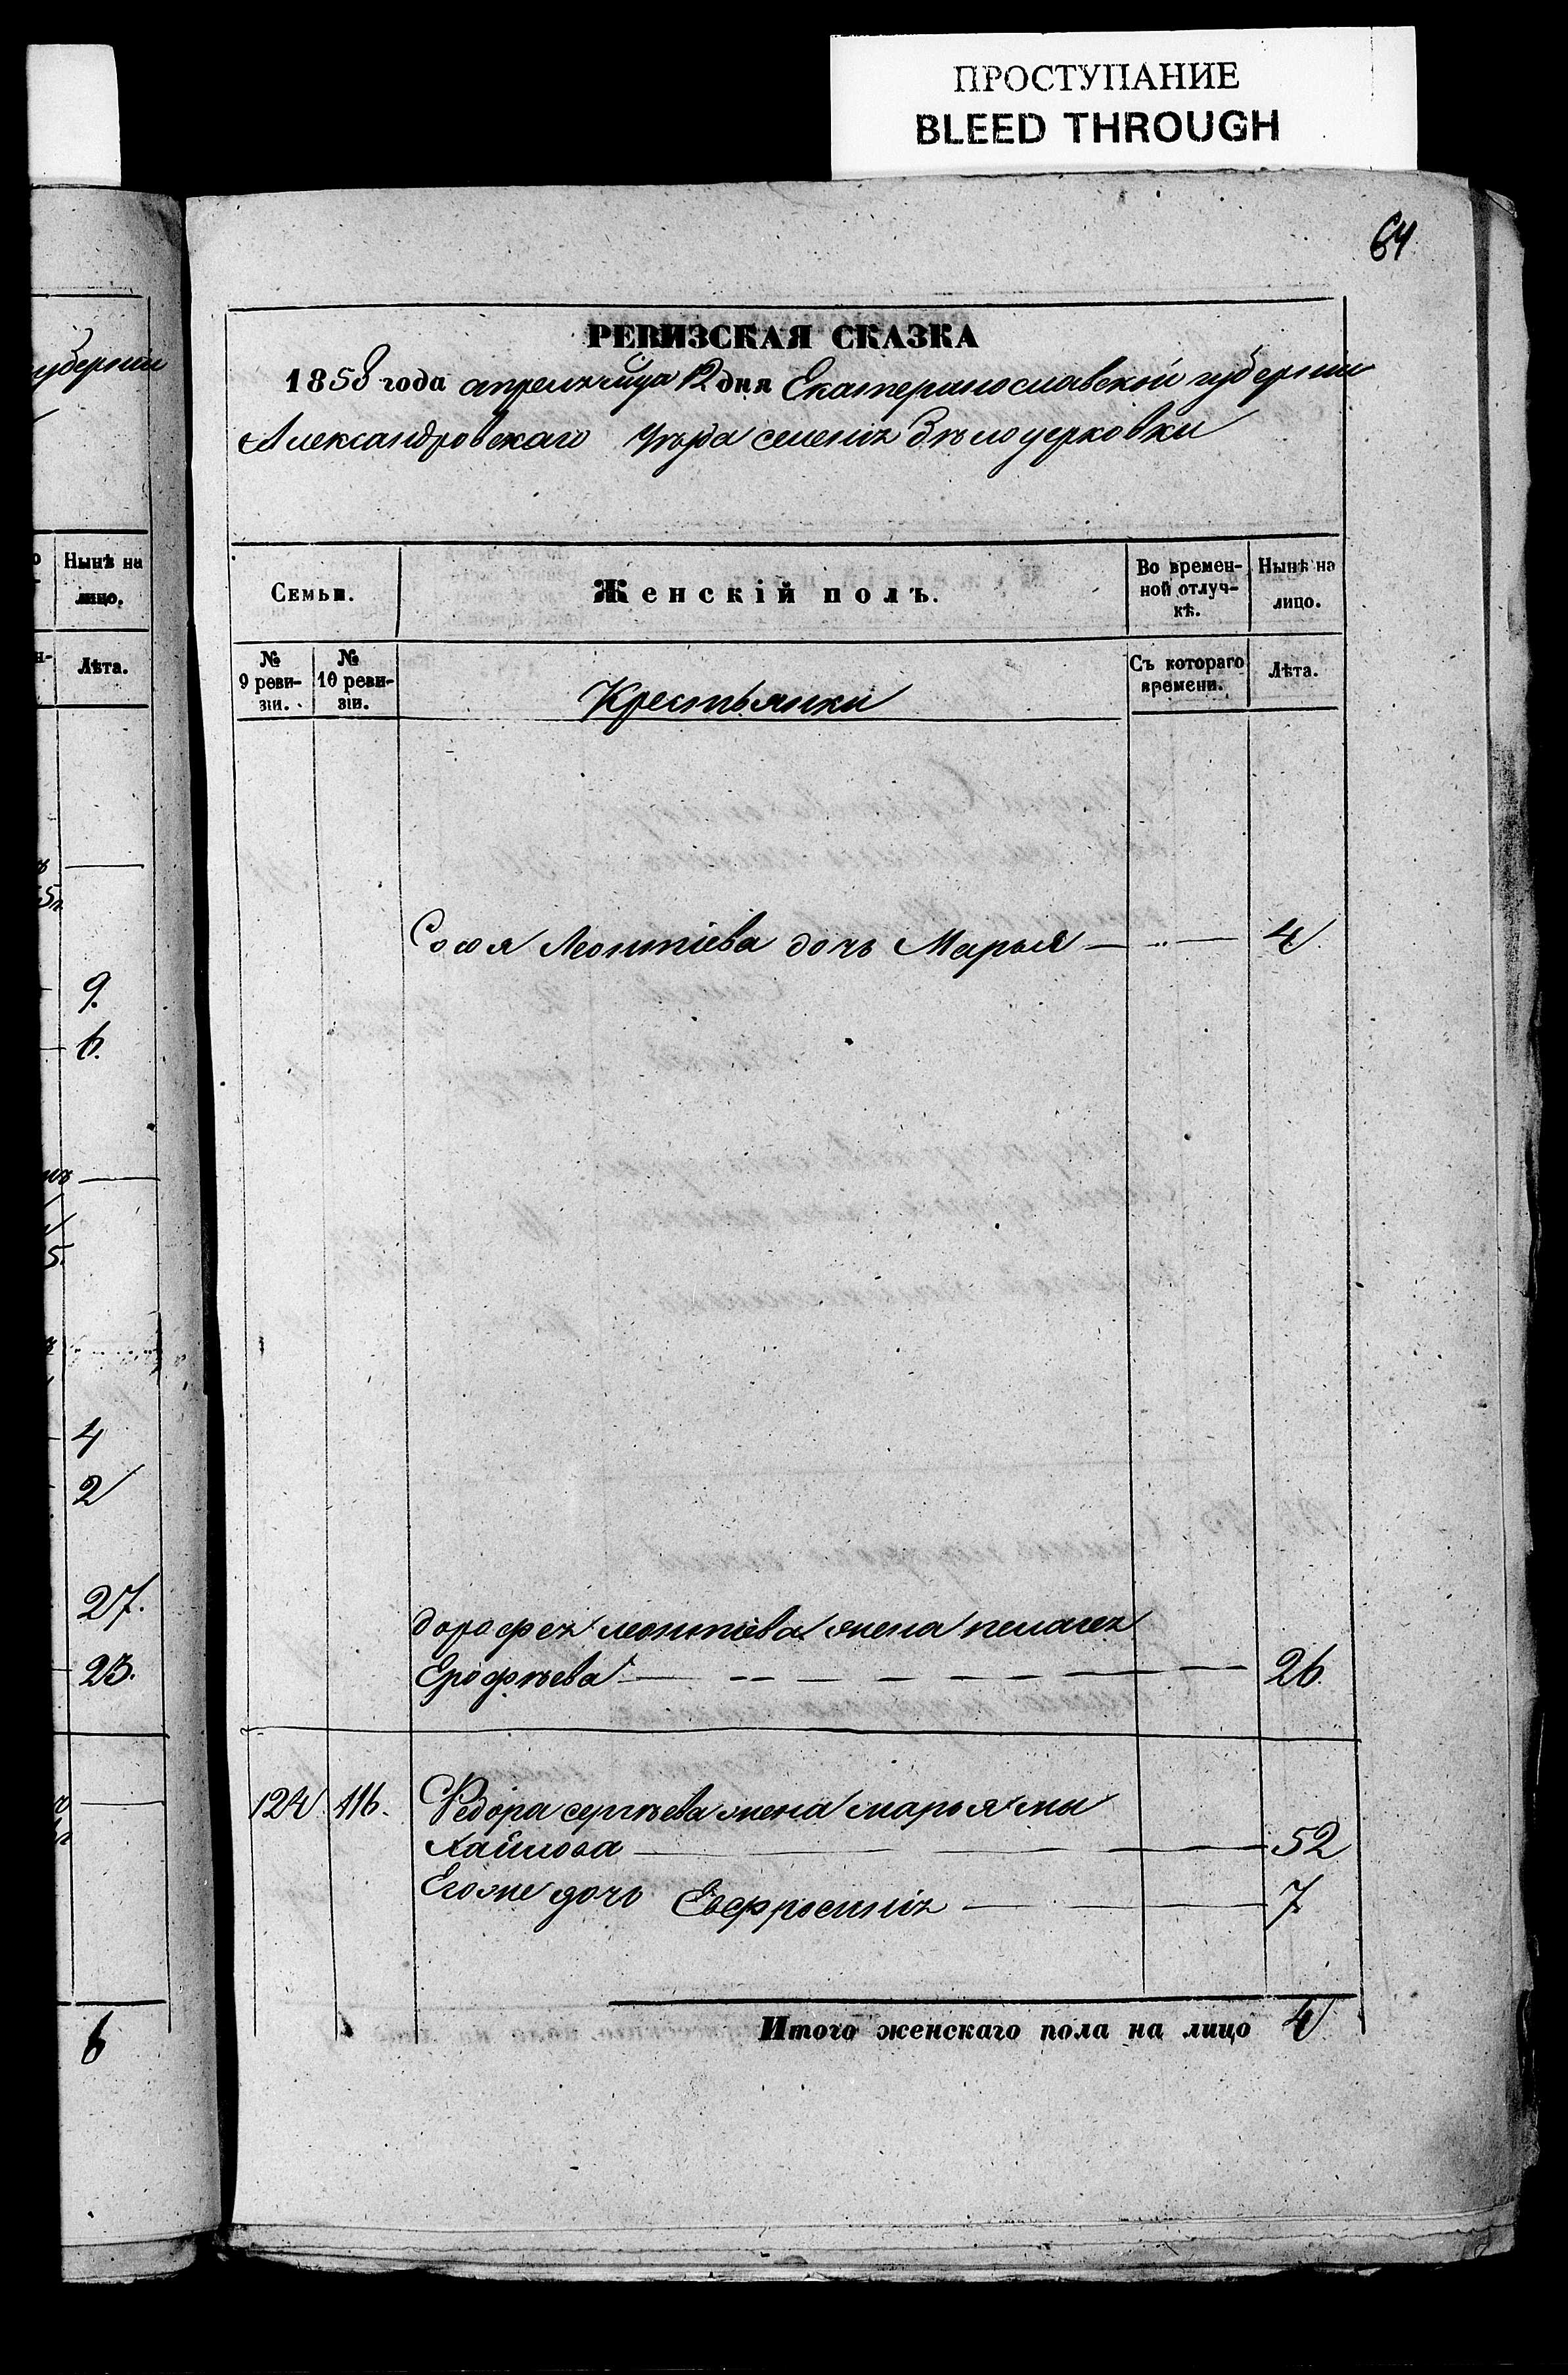 ПРОСТУПАНИЕ
BLEED THROUGH
64
губернии
РЕВИЗСКАЯ СКАЗКА
1858 года апреля мца 12 дня Екатеринославской губернии
Александровскаго уезда селения белоцерковки
Нынѣ на
лицо.
Лѣта.
Семьи.
Женскій полъ.
Во времен-
ной отлуч-
кѣ.
Нынѣ на
лицо.
№
9 реви-
зіи.
№
10 реви-
зіи.
Крестьянки
Съ котораго
времени.
Лѣта.
Софя Леонтіева дочь Марья 4
9.
6.
4
2
27.
23.
дорофея леонтіева жена пелагея
Ерофѣева 26.
124 116. Ѳедора сергѣева жена марья ми
хайлова 52
Егоже дочь Евфросинія 7
6
Итого женскаго пола на лицо 4